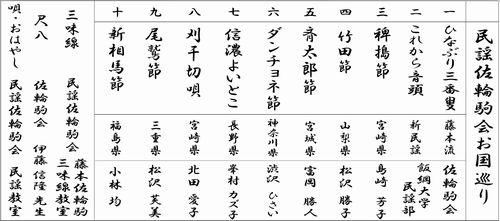 民謡佐輪駒会お国巡り
一 ひなぶり三番叟 藤本流 佐輪駒会
二 これから音頭 新民謡 飯綱大学民謡部
三 稗搗節 宮崎県 島崎芳子
四 竹田節 山梨県 松沢勝子
五 斉太郎節 宮城県 富岡勝人
六 ダンチョネ節 神奈川県 渋沢ひさい
七 信濃よいとこ 長野県 峯村カズ子
八 刈干切唄 宮崎県 北田愛子
九 尾鷲節 三重県 松沢芙美
十 新相馬節 福島県 小林均
三味線 民謡佐輪駒会 藤本佐輪駒三味線教室
尺八 佐輪駒会 伊藤信隆先生
唄・おはやし 民謡佐輪駒会 民謡教室